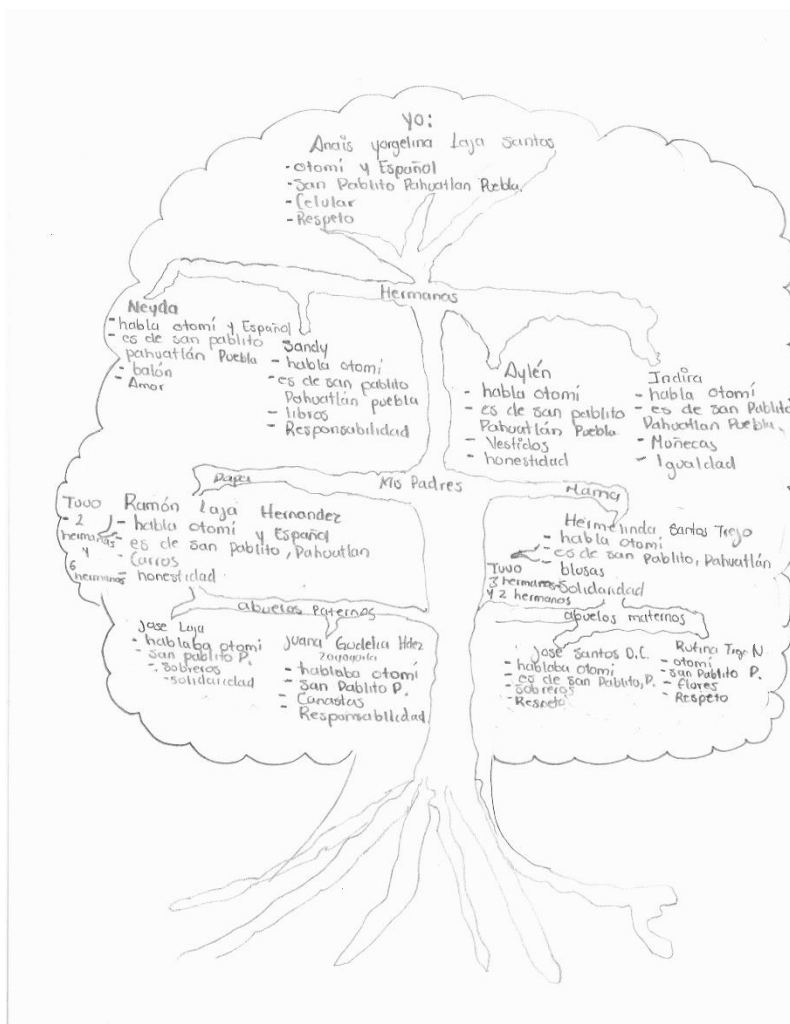 yo:
Anais yorgelina Laja Santos
- Otomí y Español
- San Pablito Pahuatlan Puebla.
- Celular
- Respeto
Hermanas
Neyda
- habla otomí y Español
- es de san pablito
pahuatlán Puebla
- balón
- Amor
Sandy
- habla otomí
- es de san pablito
Pahuatlán puebla
- libros
- Responsabilidad
Aylén
- habla otomí
- es de san pablito
Pahuatlán Puebla
- Vestidos
- honestidad
Indira
- habla otomí
- es de san Pablito
Pahuatlan Puebla.
- Muñecas
- Igualdad
Mis Padres
Papá
Ramón Laja Hernandez
- habla otomí y Español
- es de san Pablito, Pahuatlan
- Carros
- honestidad
Tuvo
- 2
hermanas
y
6
hermanos
Mama
Hermelinda Santos Trejo
- habla otomí
- es de san pablito, Pahuatlán
- blusas
- solidaridad
Tuvo
3 hermanas
y 2 hermanos
abuelos Paternos
Jose Laja
- hablaba otomi
- san pablito P.
- sobreros
- solidaridad
Juana Gudelia Hdez
- hablaba otomí
- san Pablito P.
- Canastas
- Responsabilidad
abuelos maternos
José Santos D.C.
- hablaba otomí
- es de san Pablito, P.
- sobreros
- Respeto
Rufina Trejo N
- otomí
- san Pablito P.
- flores
- Respeto